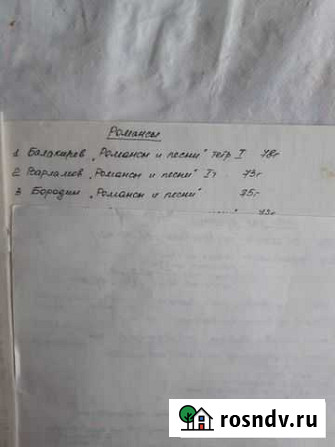 Романсы
1 Балакирев „Романсы и песни" тетр I 78г
2 Варламов „Романсы и песни" I ч 73г
3 Бородин „Романсы и песни" 75г
rosndv.ru